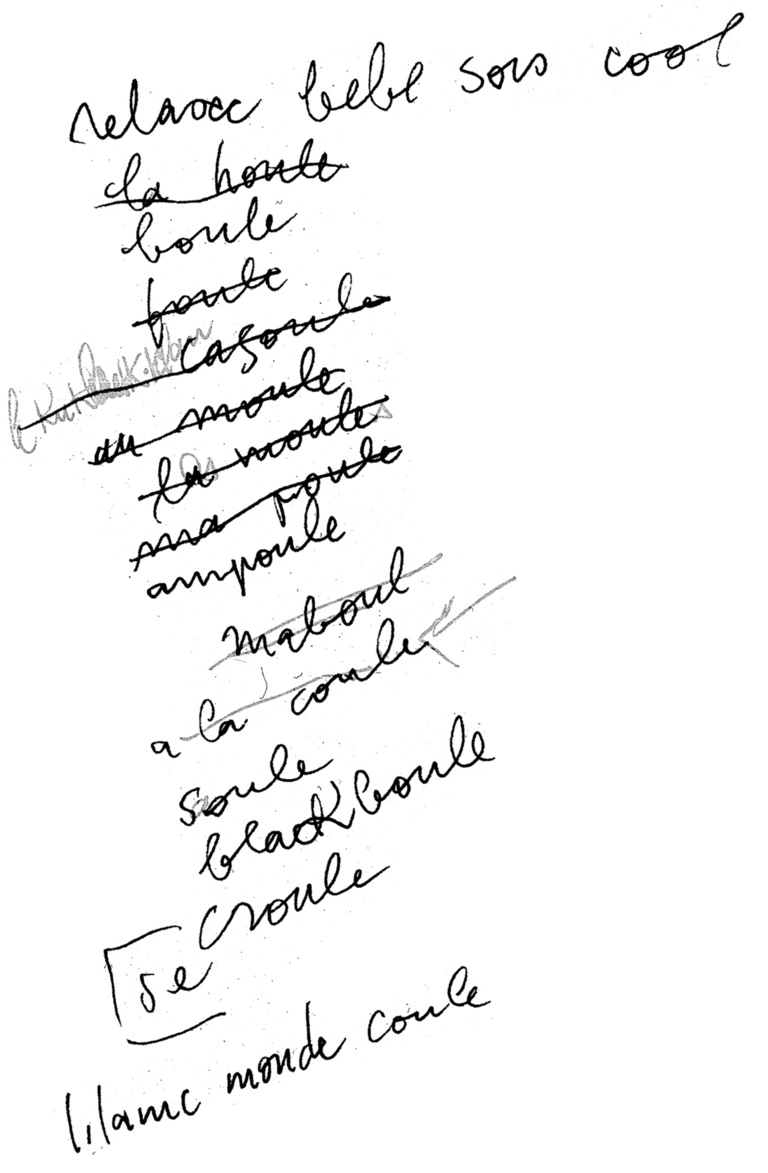 relaxe bébé sois cool
la houle
boule
foule
cagoule
le Ku Klux Klan
au moule
la moule
ma poule
ampoule
maboul
a la coule
soule
blackboule
croule
se
monde coule